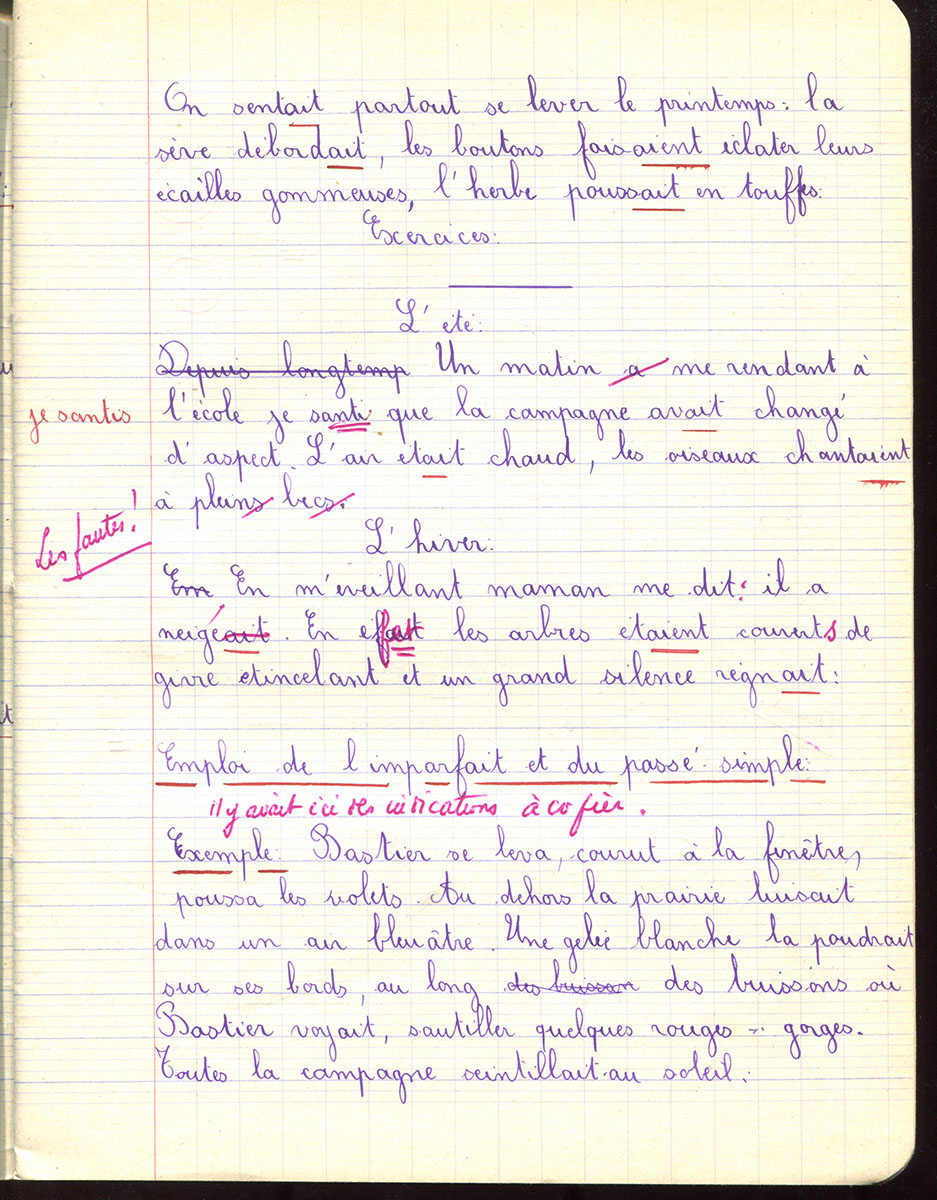 On sentait partout se lever le printemps: la
sève débordait, les boutons faisaient éclater leurs
écailles gommeuses, l'herbe poussait en touffes.
Exercices:
L'été:
Depuis longtemp Un matin a me rendant à
je santis
l'école je santi que la campagne avait changé
d'aspect. L'air était chaud, les oiseaux chantaient
à pleins becs.
Les fautes!
L'hiver:
Em En m'éveillant maman me dit: il a
neigéait. En effet les arbres etaient couverts de
givre etincelant et un grand silence régnait:
Emploi de l'imparfait et du passé simple:
il y avait ici des indications à copier.
Exemple: Bastier se leva, courut à la fenêtre,
poussa les volets. Au dehors la prairie luisait
dans un air bleuâtre. Une gelée blanche la poudrait
sur ses bords, au long des buisson des buissons où
Bastier voyait, sautiller quelques rouges-gorges.
Toutes la campagne scintillait au soleil.